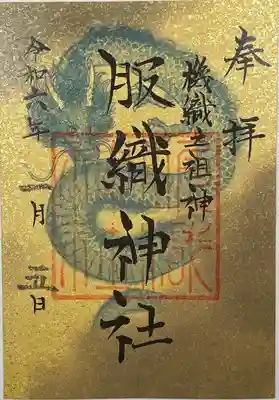 奉拝
機織之祖神
服織神社
令和六年
二月